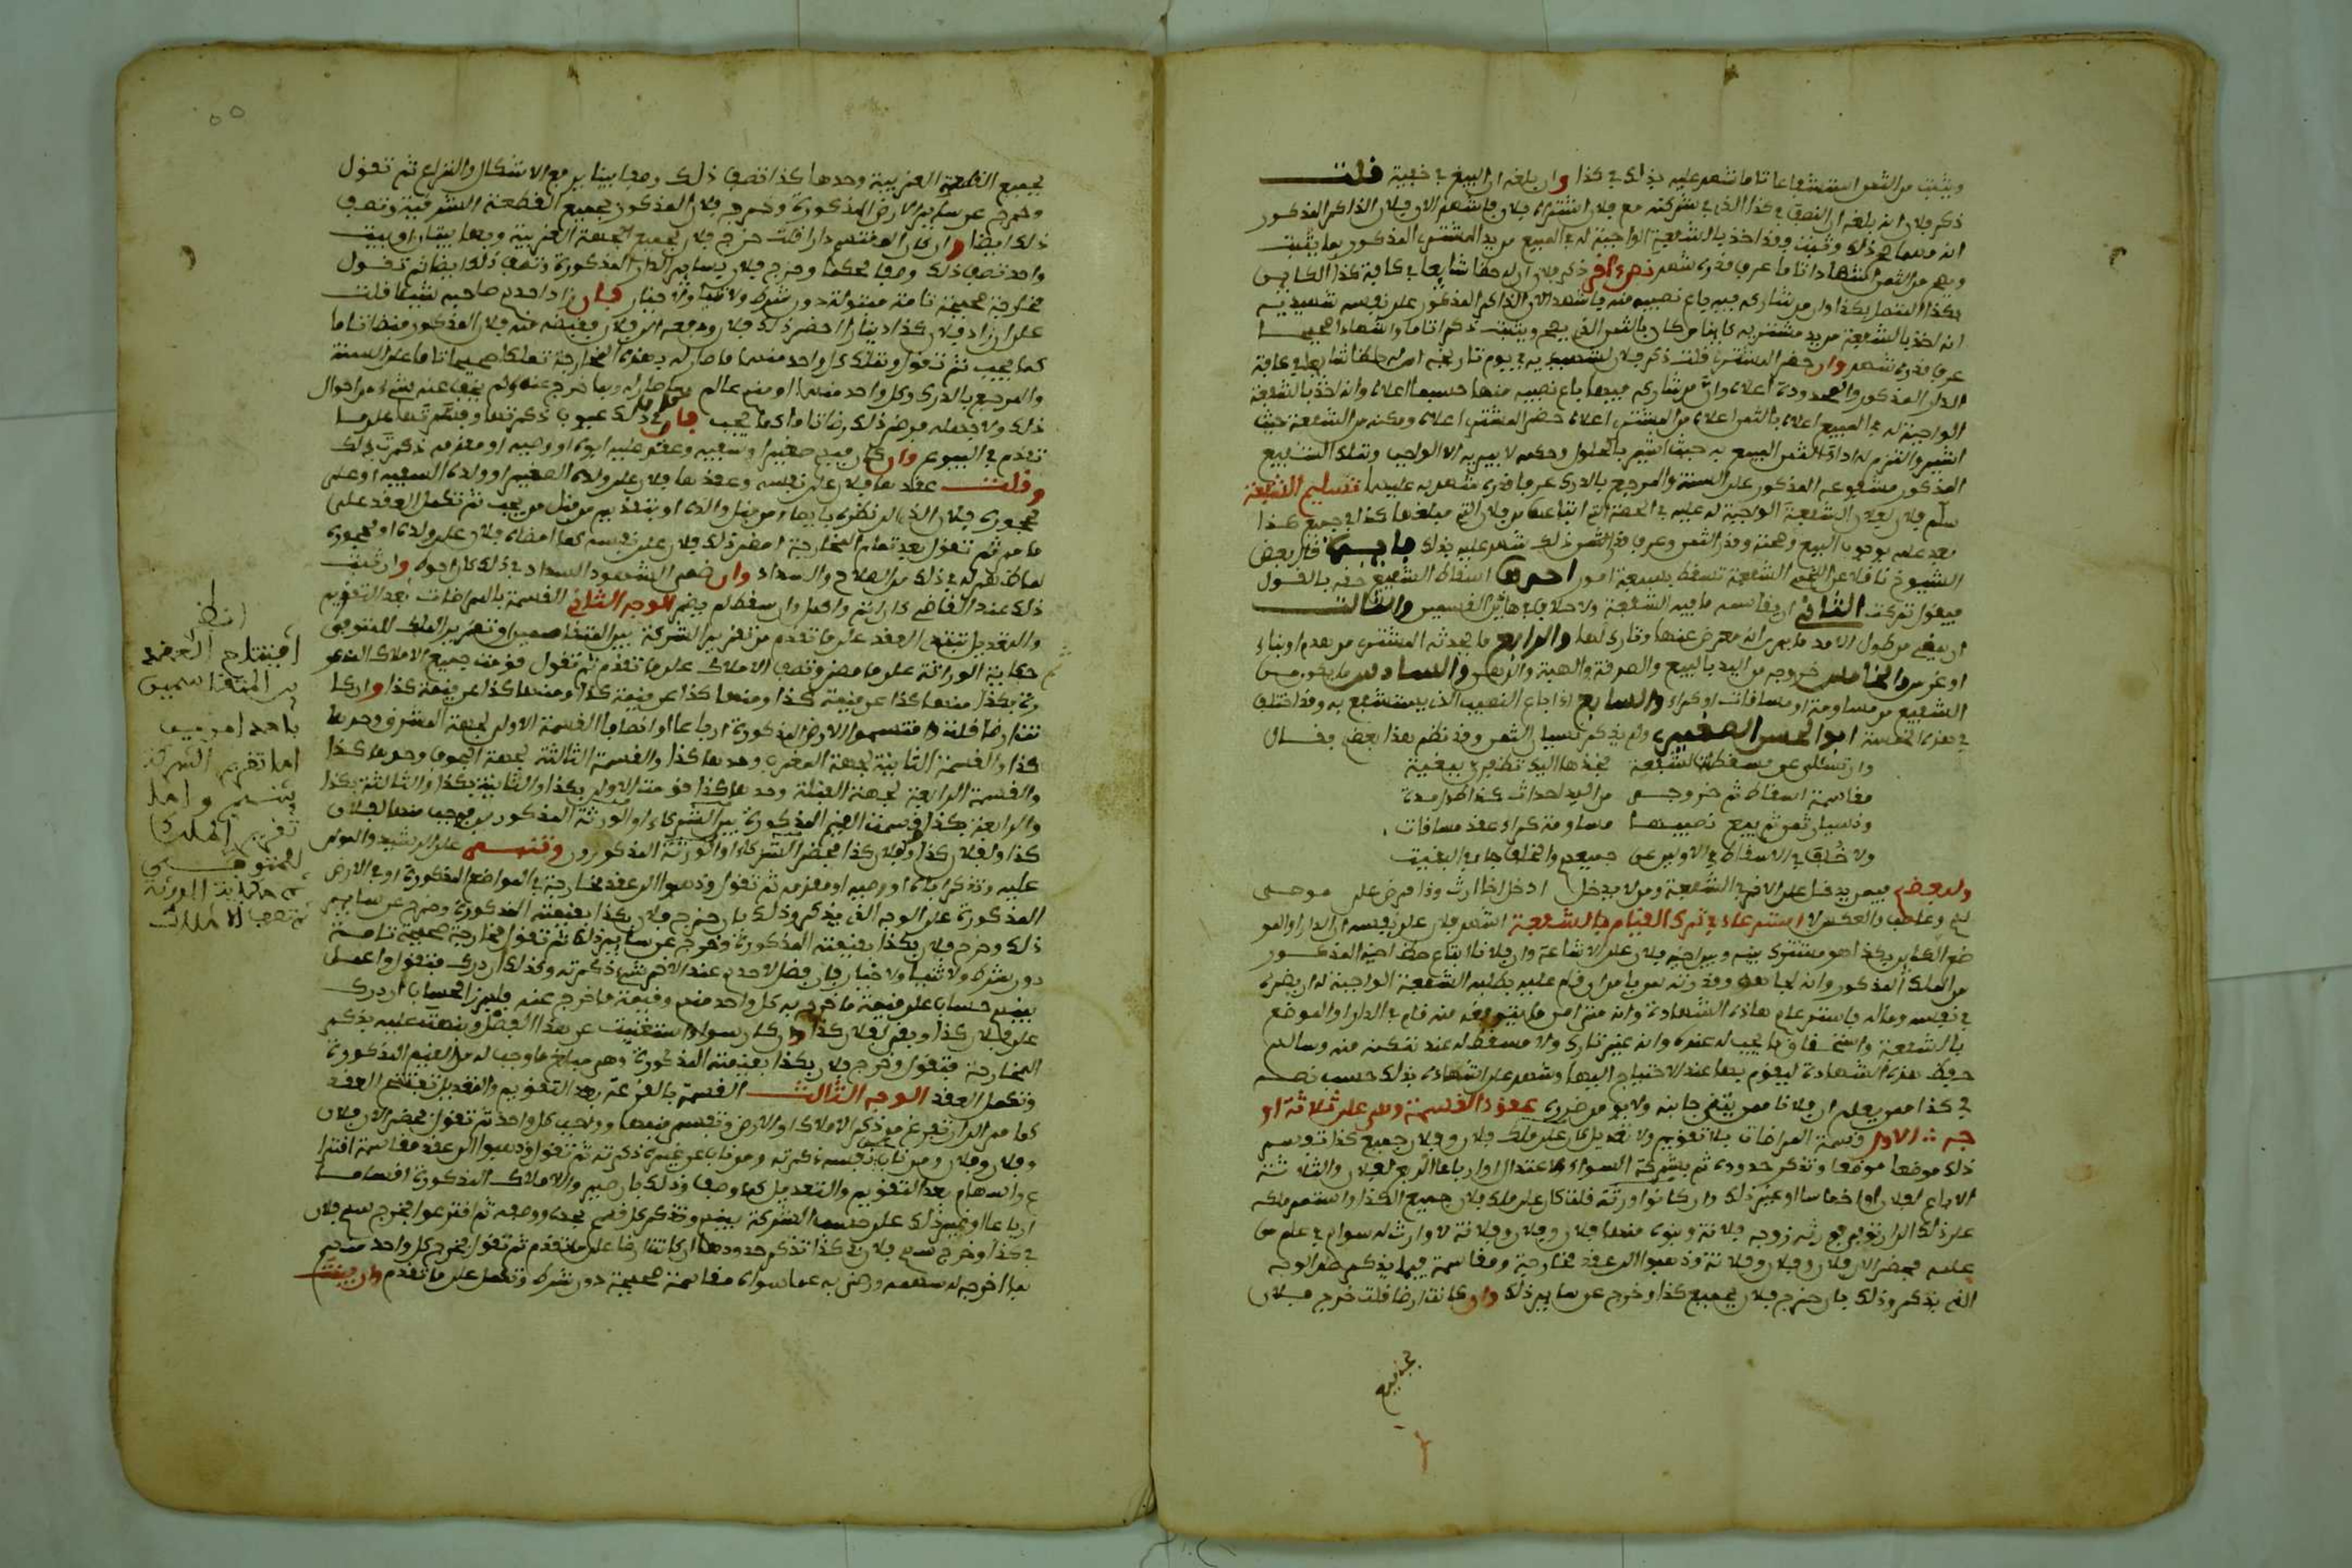 ويثبت من الثمن استشفاعا تاما شهد عليه بذلك في كذا وان بلغه ان البيع في خفية قلت
ذكر فلان انه بلغه ان النصف في كذا الذي في شركته مع فلان اشتراه فلان فاشهد الان فلان الذاكر المذكور
انه مهما صح ذلك وثبت وقد اخذ بالشفعة الواجبة له في المبيع من يد المشتري المذكور بما يثبت
ويصح من الثمن اشهادا تاما عرف قدره شهد نص اخر ذكر فلان ان له حظا شايعا في كافة كذا الكاين
بكذا المتصل بكذا وان من شاركه فيه باع نصيبه منه فاشهد الان الذاكر المذكور على نفسه شهيديه
انه اخذ بالشفعة من يد مشتريه كاينا من كان بالثمن الذي يصح ويثبت ذكرا تاما واشهادا صحيحا
عرف قدره شهد وان حضر المشتري قلت ذكر فلان لشهيديه في يوم تاريخه ان له ملكا شايعا في كافة
الدار المذكور والمحدودة اعلاه وان من شاركه فيها باع نصيبه منها حسبما اعلاه وانه اخذ بالشفعة
الواجبة له في المبيع اعلاه بالثمن اعلاه من المشتري اعلاه حضر المشتري اعلاه ومكنه من الشفعة حيث
اشير والتزم له اداء الثمن المبيع به حيث اشير بالحلول وحكمه لا يبريه الا الواجب وتملك الشفيع
المذكور مشفوعه المذكور على السنة والمرجع بالدرك عرفا قدره شهد به عليهما تسليم الشفعة
سلم فلان لفلان الشفعة الواجبة له عليه في الحصة التي ابتاعها من فلان التي مبلغها كذا في جميع كذا
بعد علمه بوجوب البيع وصحته وقدر الثمن وعرف قدر الثمن ذلك شهد عليه بذلك فايدة قال بعض
الشيوخ ناقلا عن اللخمي الشفعة تسقط بسبعة امور احدها اسقاط الشفيع حقه بالقول
فيقول تركت الثاني ان يقاسمه ما فيه الشفعة ولا خلاف في هاذين القسمين والثالث
ان يمضي من طول الامد ما يرى انه معرض عنها وتارك لها والرابع ما يحدثه المشتري من هدم او بناء
او غرس والخامس خروجه من اليد بالبيع والصدقة والهبة والرهن والسادس ما يكون من
الشفيع من مساومة او مساقات او كراء والسابع اذا باع النصيب الذي يستشفع به وقد اختلف
في هذه الخمسة ابو الحسن الصغير ولم يذكر نسيان الثمن وقد نظم هذا بعض فقال
وان تسئلن عن مسقطات الشفعة فخذها اليك تظفرن ببغية
مقاسمة اسقاط ثم خروجه من اليد احداث كذا طول مدة
ونسيان ثمن ثم بيع نصيبها مساومة كراء عقد مسافات
ولا خلف في الاسقاط في الاولين عن جميعهم والخلف جا في البقيت
ولبعضهم فيمن يدخل على الاخر في الشفعة ومن لا يدخل ادخل اخا ارث وذا فرض على موصى
لهم وعاصب والعكس لا استرعاء في ترك القيام بالشفعة اشهد فلان على نفسه ان الدار او المو
ضع الكاين بكذا هو مشترك بينه وبين اخيه فلان على الاشاعة وان فلانا ابتاع حظ اخيه المذكور
من الملك المذكور وانه لجاهه وقدرته يخاف من ان قام عليه بطلبه الشفعة الواجبة له ان يضره
في نفسه وماله فاسترعى هاذه الشهادة وانه متى امن مما يتوقعه منه قام في الدار او الموضع
بالشفعة واستحقاق ما يجب له عنده وانه غير تارك ولا مسقط له عند تمكنه منه وسالهم
حفظ هذه الشهادة ليقوم بها عند الاحتياج اليها وشهد على اشهاده بذلك حسب نصه
في كذا ممن يعلم ان فلانا ممن يتقى جانبه ولا يومن ضرره عقود القسمة وهي على ثلاثة او
جه الاول قسمة المراضات بلا تقويم ولا تعديل كان على ملك فلان وفلان جميع كذا توسم
ذلك موضعا موضعا وتذكر حدوده ثم بشركة السواء والاعتدال او ارباعا الربع لفلان والثلاثة
الارباع لفلان او اخماسا او غير ذلك وان كانوا ورثة قلت كان على ملك فلان جميع الكذا واستمر ملكه
على ذلك الى ان توفي فورثه زوجه فلانة وبنوه منها فلان وفلان وفلانة لا وارث له سواهم في علم من
علمه فحضر الان فلان وفلان وفلانة وذهبوا الى عقد مخارجة ومقاسمة فيما يذكر على الوجه
الذي يذكر وذلك بان خرج فلان بجميع كذا وخرج عن ساير ذلك وان كانت ارضا قلت خرج فلان
بجميع القطعة الغربية وحدها كذا تصف ذلك وصفا بينا يرفع الاشكال والنزاع ثم تقول
وخرج عن ساير الارض المذكورة وخرج فلان المذكور بجميع القطعة الشرقية وتصف
ذلك ايضا وان كان المقتسم دارا قلت خرج فلان بجميع الجهة الغربية وبها بيتان او بيت
واحد تصف ذلك وصفا محكما وخرج فلان بساير الدار المذكورة وتصف ذلك ايضا ثم تقول
مخارجة صحيحة تامة مبتولة دون شرط ولا ثنيا ولا خيار فان زاد احدهم صاحبه شيئا قلت
على ان زاد فلان كذا دينارا احضر ذلك فلان ودفعه الى فلان فقبضه منه فلان المذكور قبضا تاما
كما يجب ثم تقول وتملك كل واحد منهما ما صار له بهذه المخارجة تملكا صحيحا تاما على السنة
والمرجع بالدرك وكل واحد منهما او منهم عالم بما صار له وبما خرج عنه ولم يخف عنه شيء من احوال
ذلك ولا جهله فرضي ذلك رضا تاما كما يجب فان كان في ذلك عيوب ذكرتها وفسرتها على ما
تقدم في البيوع وان كان فيهم صغير او سفيه وعقد عليه ابوه او وصيه او مقدمه ذكرت ذلك
وقلت عقدها فلان على نفسه وعقدها فلان على ولده الصغير او ولده السفيه او على
محجوره فلان الذي الى نظره بايصاء من قبل والده او بتقديم من قبل من يجب ثم تكمل العقد على
ما مر ثم تقول بعد تمام المخارجة امضى ذلك فلان على نفسه كما امضاه فلان على ولده او محجوره
لما ظهر له في ذلك من الصلاح والسداد وان ضمن الشهود السداد في ذلك كان احوط وان ثبت
ذلك عند القاضي كان اتم واكمل وان سقط لم يضر الوجه الثاني القسمة بالمراضات بعد التقويم
والتعديل تفتتح العقد على ما تقدم من تقرير الشركة بين المتقاسمين او تقرير الملك للمتوفى
ثم حكاية الوراثة على ما مضى وتصف الاملاك على ما تقدم ثم تقول قومت جميع الاملاك المذكو
رة بكذا منها كذا عن قيمة كذا ومنها كذا عن قيمة كذا ومنها كذا عن قيمة كذا وان كا
نت ارضا قلت اقتسموا الارض المذكورة ارباعا او انصافا القسمة الاولى لجهة المشرق وحدها
كذا والقسمة الثانية لجهة المغرب وحدها كذا والقسمة الثالثة لجهة الجوف وحدها كذا
والقسمة الرابعة لجهة القبلة وحدها كذا قومت الاولى بكذا والثانية بكذا والثالثة بكذا
والرابعة بكذا وقسمت القيم المذكورة بين الشركاء او الورثة المذكورين فوجب منها لفلان
كذا ولفلان كذا ولفلان كذا فحضر الشركاء او الورثة المذكورون وتسمى على الرشيد والمولى
عليه وتذكر اباه او وصيه او مقدمه ثم تقول وذهبوا الى عقد مخارجة في المواضع المذكورة او في الارض
المذكورة على الوجه الذي يذكر وذلك بان خرج فلان بكذا بقيمته المذكورة وخرج عن ساير
ذلك وخرج فلان بكذا بقيمته المذكورة وخرج عن ساير ذلك ثم تقول مخارجة صحيحة تامة
دون شرط ولا ثنيا ولا خيار فان فضل لاحدهم عند الاخر شيء ذكرته وكذلك ان درك فتقول واعمل
بينهم حساب على قيمة ما خرج به كل واحد منهم وقيمة ما خرج عنه فابرز الحساب ان درك
على فلان كذا وبقي لفلان كذا وان كان سواء استغنيت عن هذا الفصل ونبهت عليه بذكر
المخارجة فتقول وخرج فلان بكذا بقيمته المذكورة وهي مبلغ ما وجب له من القيم المذكورة
وتكمل العقد الوجه الثالث القسمة بالقرعة بعد التقويم والتعديل تفتتح العقد
كما مر الى ان تفرغ من ذكر الاملاك او الارض وتقسم قيمها ووجب كل واحد ثم تقول فحضر الان فلان
وفلان وفلان ومن ناب عن نفسه ذكرته ومن ناب عن غيره ذكرته ثم تقول وذهبوا الى عقد مقاسمة اقترا
ع واسهام بعد التقويم والتعديل كما وصف وذلك بان صيروا الاملاك المذكورة اقساما
ارباعا او غير ذلك على حسب الشركة بينهم وتذكر كل قسم بحده ووصفه ثم اقترعوا فخرج سهم فلان
في كذا وخرج سهم فلان في كذا تذكر حدودها ان كانت ارضا على ما تقدم ثم تقول فخرج كل واحد منهم
بما اخرجه له سهمه ورضي به عما سواه مقاسمة صحيحة دون شرط وتكمل على ما تقدم وان بقيت
انظر
افتتاح العقد
بين المتقاسمين
باحد امرين
اما تقرير الشركة
بينهم واما
تقرير الملك
للمتوفى
ثم حكاية الوراثة
ثم تصف الاملاك